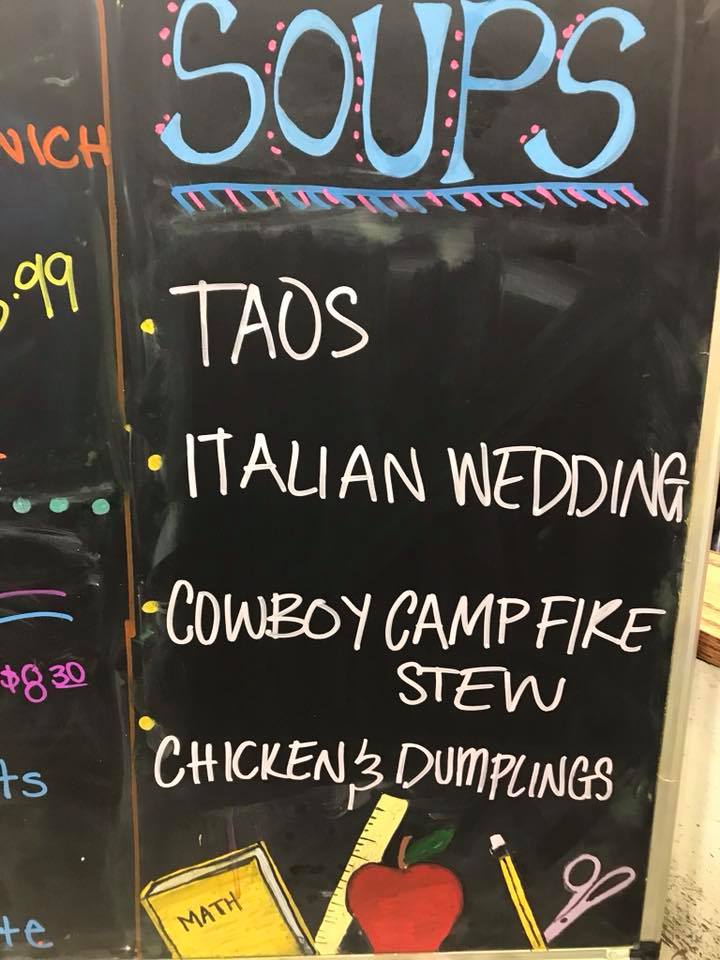 SOUPS
TAOS
ITALIAN WEDDING
COWBOY CAMPFIRE
STEW
CHICKEN & DUMPLINGS
MATH
.99
$8.30